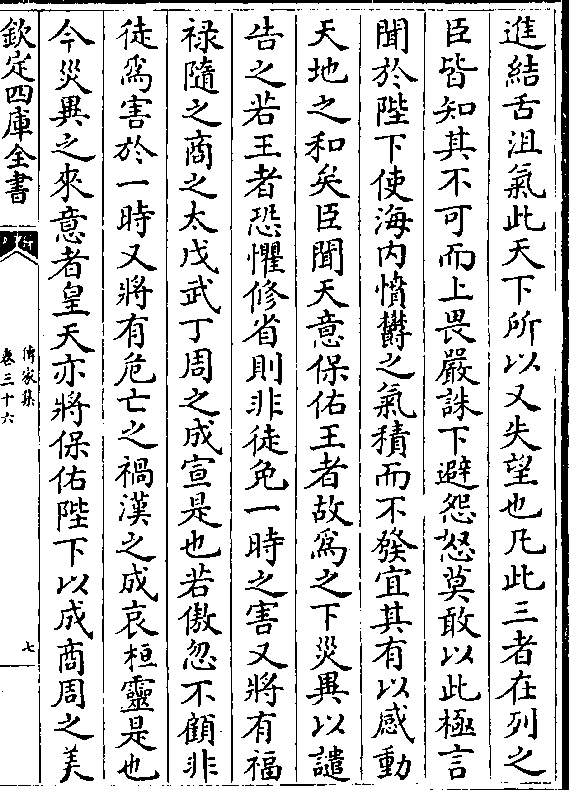 進結舌沮氣此天下所以又失望也凡此三者在列之
臣皆知其不可而上畏嚴誅下避怨怒莫敢以此極言
聞於陛下使海内憤鬱之氣積而不發宜其有以感動
天地之和矣臣聞天意保佑王者故為之下災異以譴
告之若王者恐懼修省則非徒免一時之害又將有福
禄隨之商之太戊武丁周之成宣是也若傲忽不顧非
徒為害於一時又將有危亡之禍漢之成哀桓靈是也
今災異之來意者皇天亦將保佑陛下以成商周之美
欽定四庫全書
傳家集
卷三十六
七